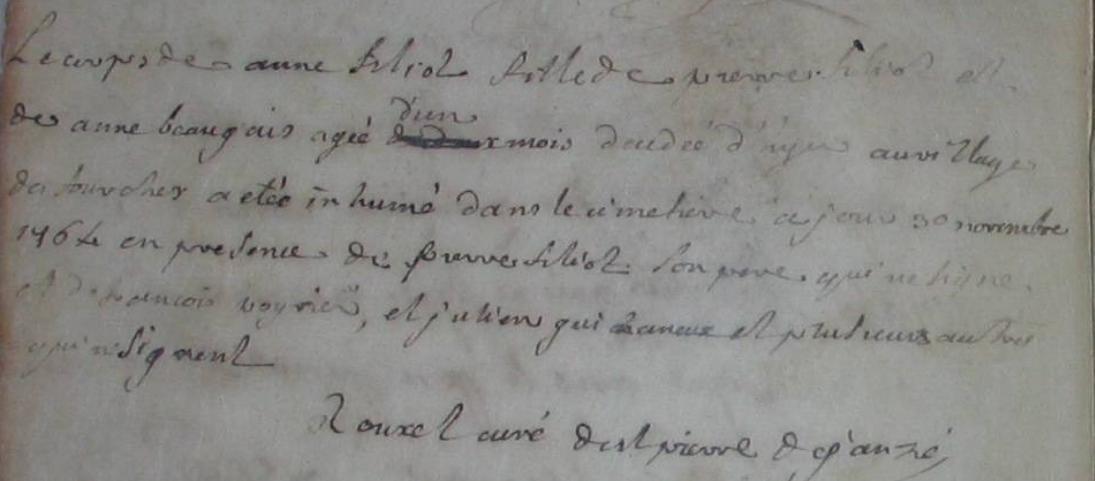 Le corps de anne filiol fille de pierre filiol et
de anne beaugais ageé d'un mois decedeé d'hyer au village
des fourches a eteé inhumé dans le cimetiere ce jour 30 novembre
1764 en presence de pierre filiol son pere qui ne signe
et de francois voyrier, et julien et plusieurs autres
qui ne signent
Rouxel curé de st pierre de